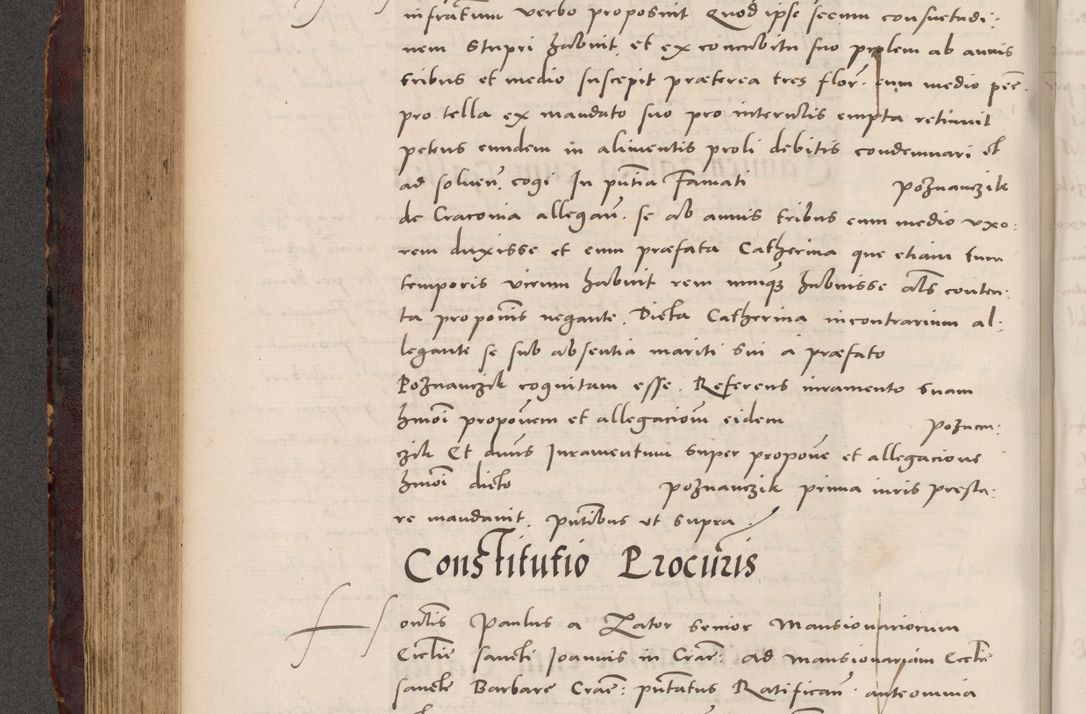 infratum verbo proposuit Quod ipse secum consuetudi:
nem Stupri habuit, et ex concubitu suo prolem ab annis
tribus et medio suscepit præterea tres flor. cum medio pec:
pro tella ex mandato suo pro interulis empta retinuit
petens eundem in alimentis proli debitis condemnari et
ad solven̄. cogi In pn̄tia Famati Poznanczik
de Cracovia allegan̄. se ab annis tribus cum medio uxo:
rem duxisse et cum præfata Catherina que etiam tum
temporis virum habuit rem nunq̨ habuisse als conten:
ta proponis negante. Dicta Catherina incontrarium al:
legante se sub absentia mariti sui a præfato
Poznanczik cognitam esse. Referens iuramento suam
hmoi proponem et allegacionem eidem Poznan:
zik Et dnus Iuramentum super propone et allegacione
hmoi dicto Poznanczik prima iuris presta:
re mandavit. pntibus ut supra
Constitutio Procuris
Paulus a Zator senior Mansionariorum
Ecclie sancti Joannis in Crac: ad Mansionariam Ecclie
sancte Barbare Crac: pntatus Ratifican̄. anteomnia